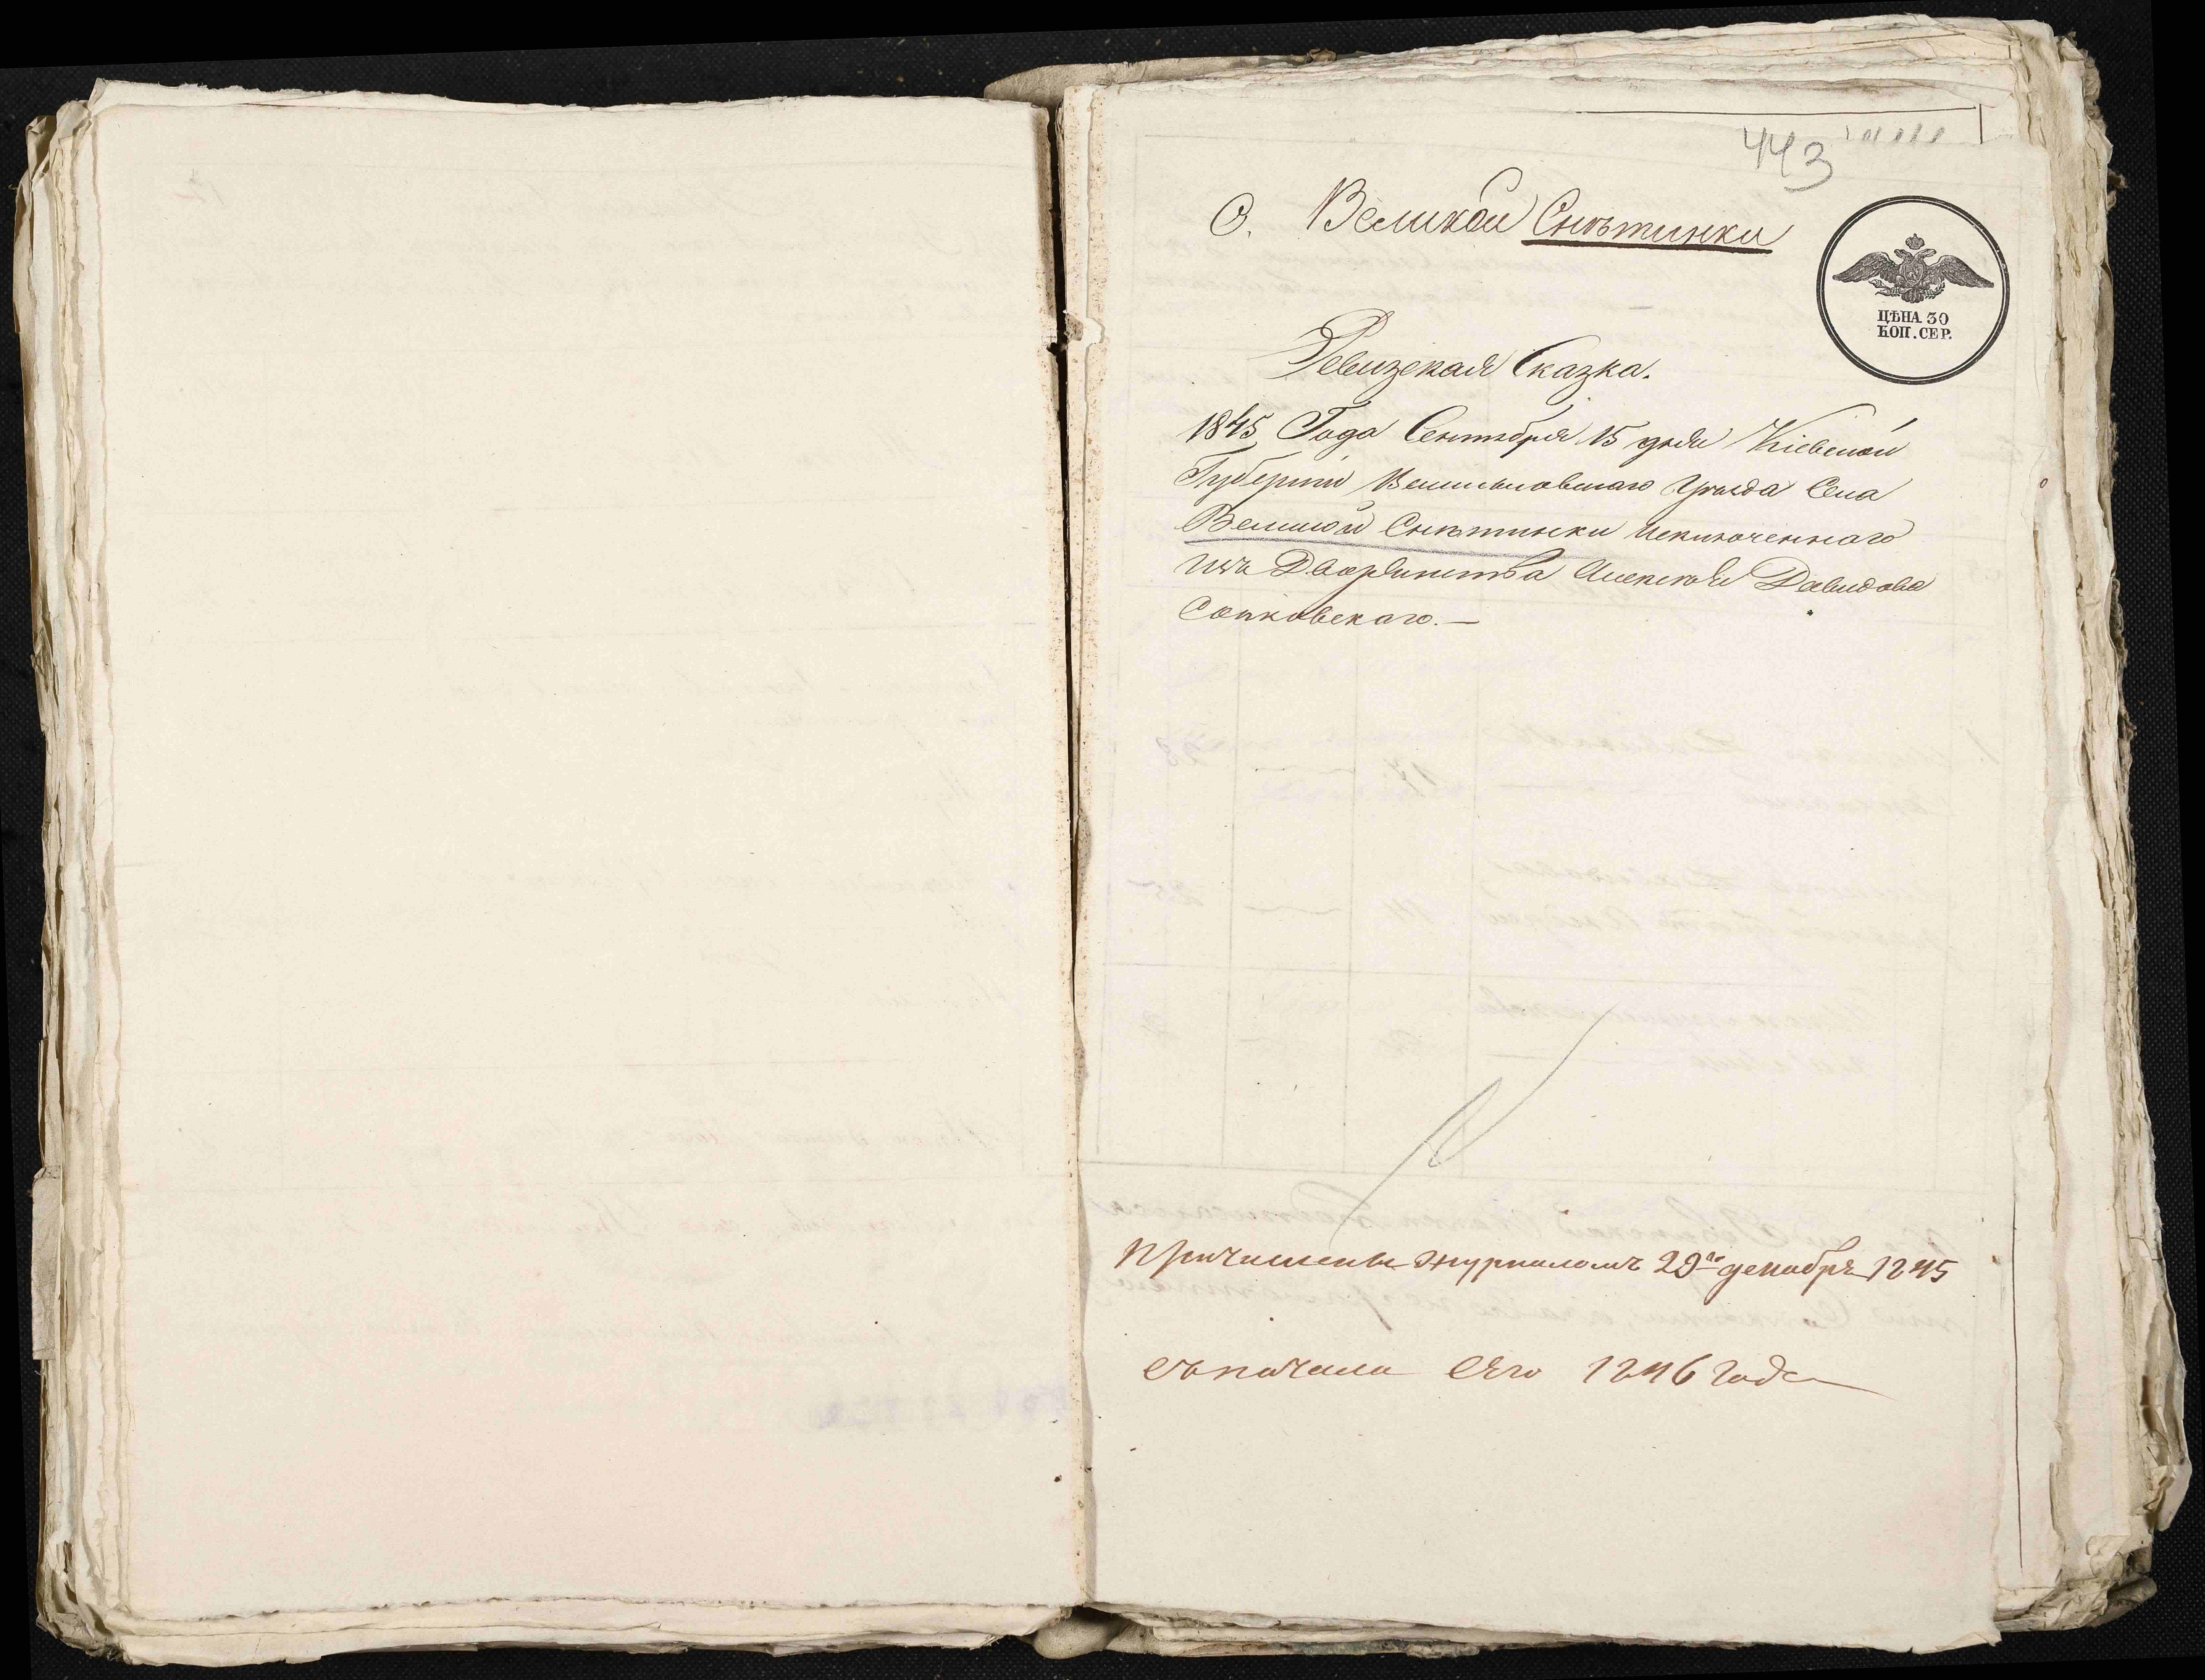 443
С. Великой Снѣтинки
ЦѢНА 30
КОП. СЕР.
Ревизская Сказка.
1845 Года Сентября 15 дня Кіевской
Губерніи Васильковскаго Уѣзда Села
Великой Снѣтинки исключеннаго
изъ Дворянства Алексѣя Давидова
Сопковскаго. —
Причислены журналомъ 29го декабря 1845
съ начала 1846 года